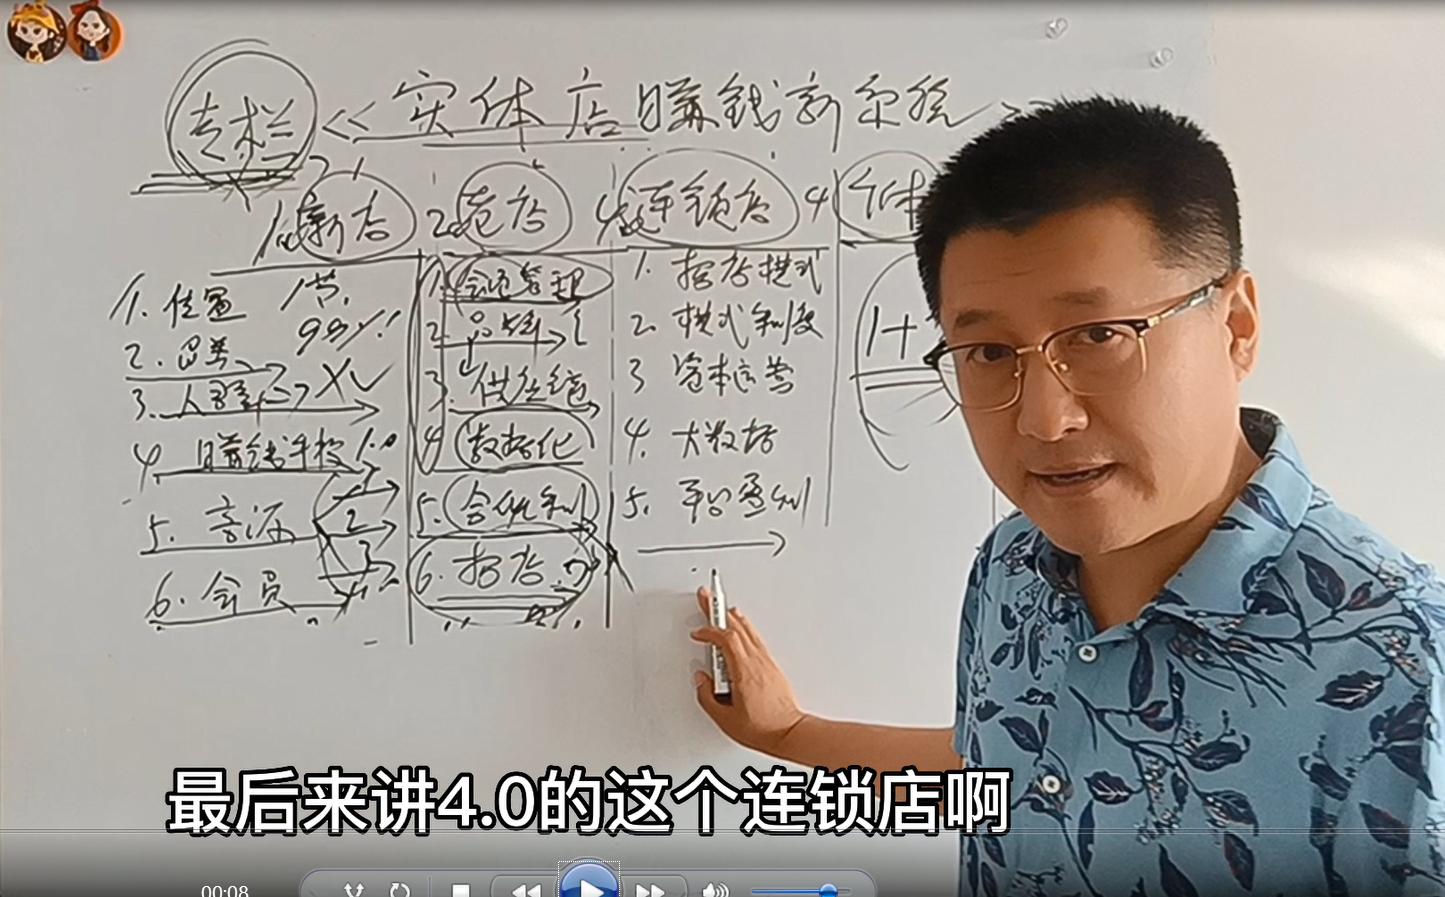 专栏 《实体店赚钱新系统》
1. 新店 2. 老店 连锁店 4 个体
1. 位置
2.
3. 人群
4 赚钱手段 1.0
5. 客源
6. 会员
99%!
1
2
3
1. 会员管理
2. 品类
3. 供应链
4 数据化
5. 合伙制
6. 拓店
1. 拓店模式
2. 模式制度
3 资本运营
4. 大数据
5. 平台盈利
1+
最后来讲4.0的这个连锁店啊
00:08